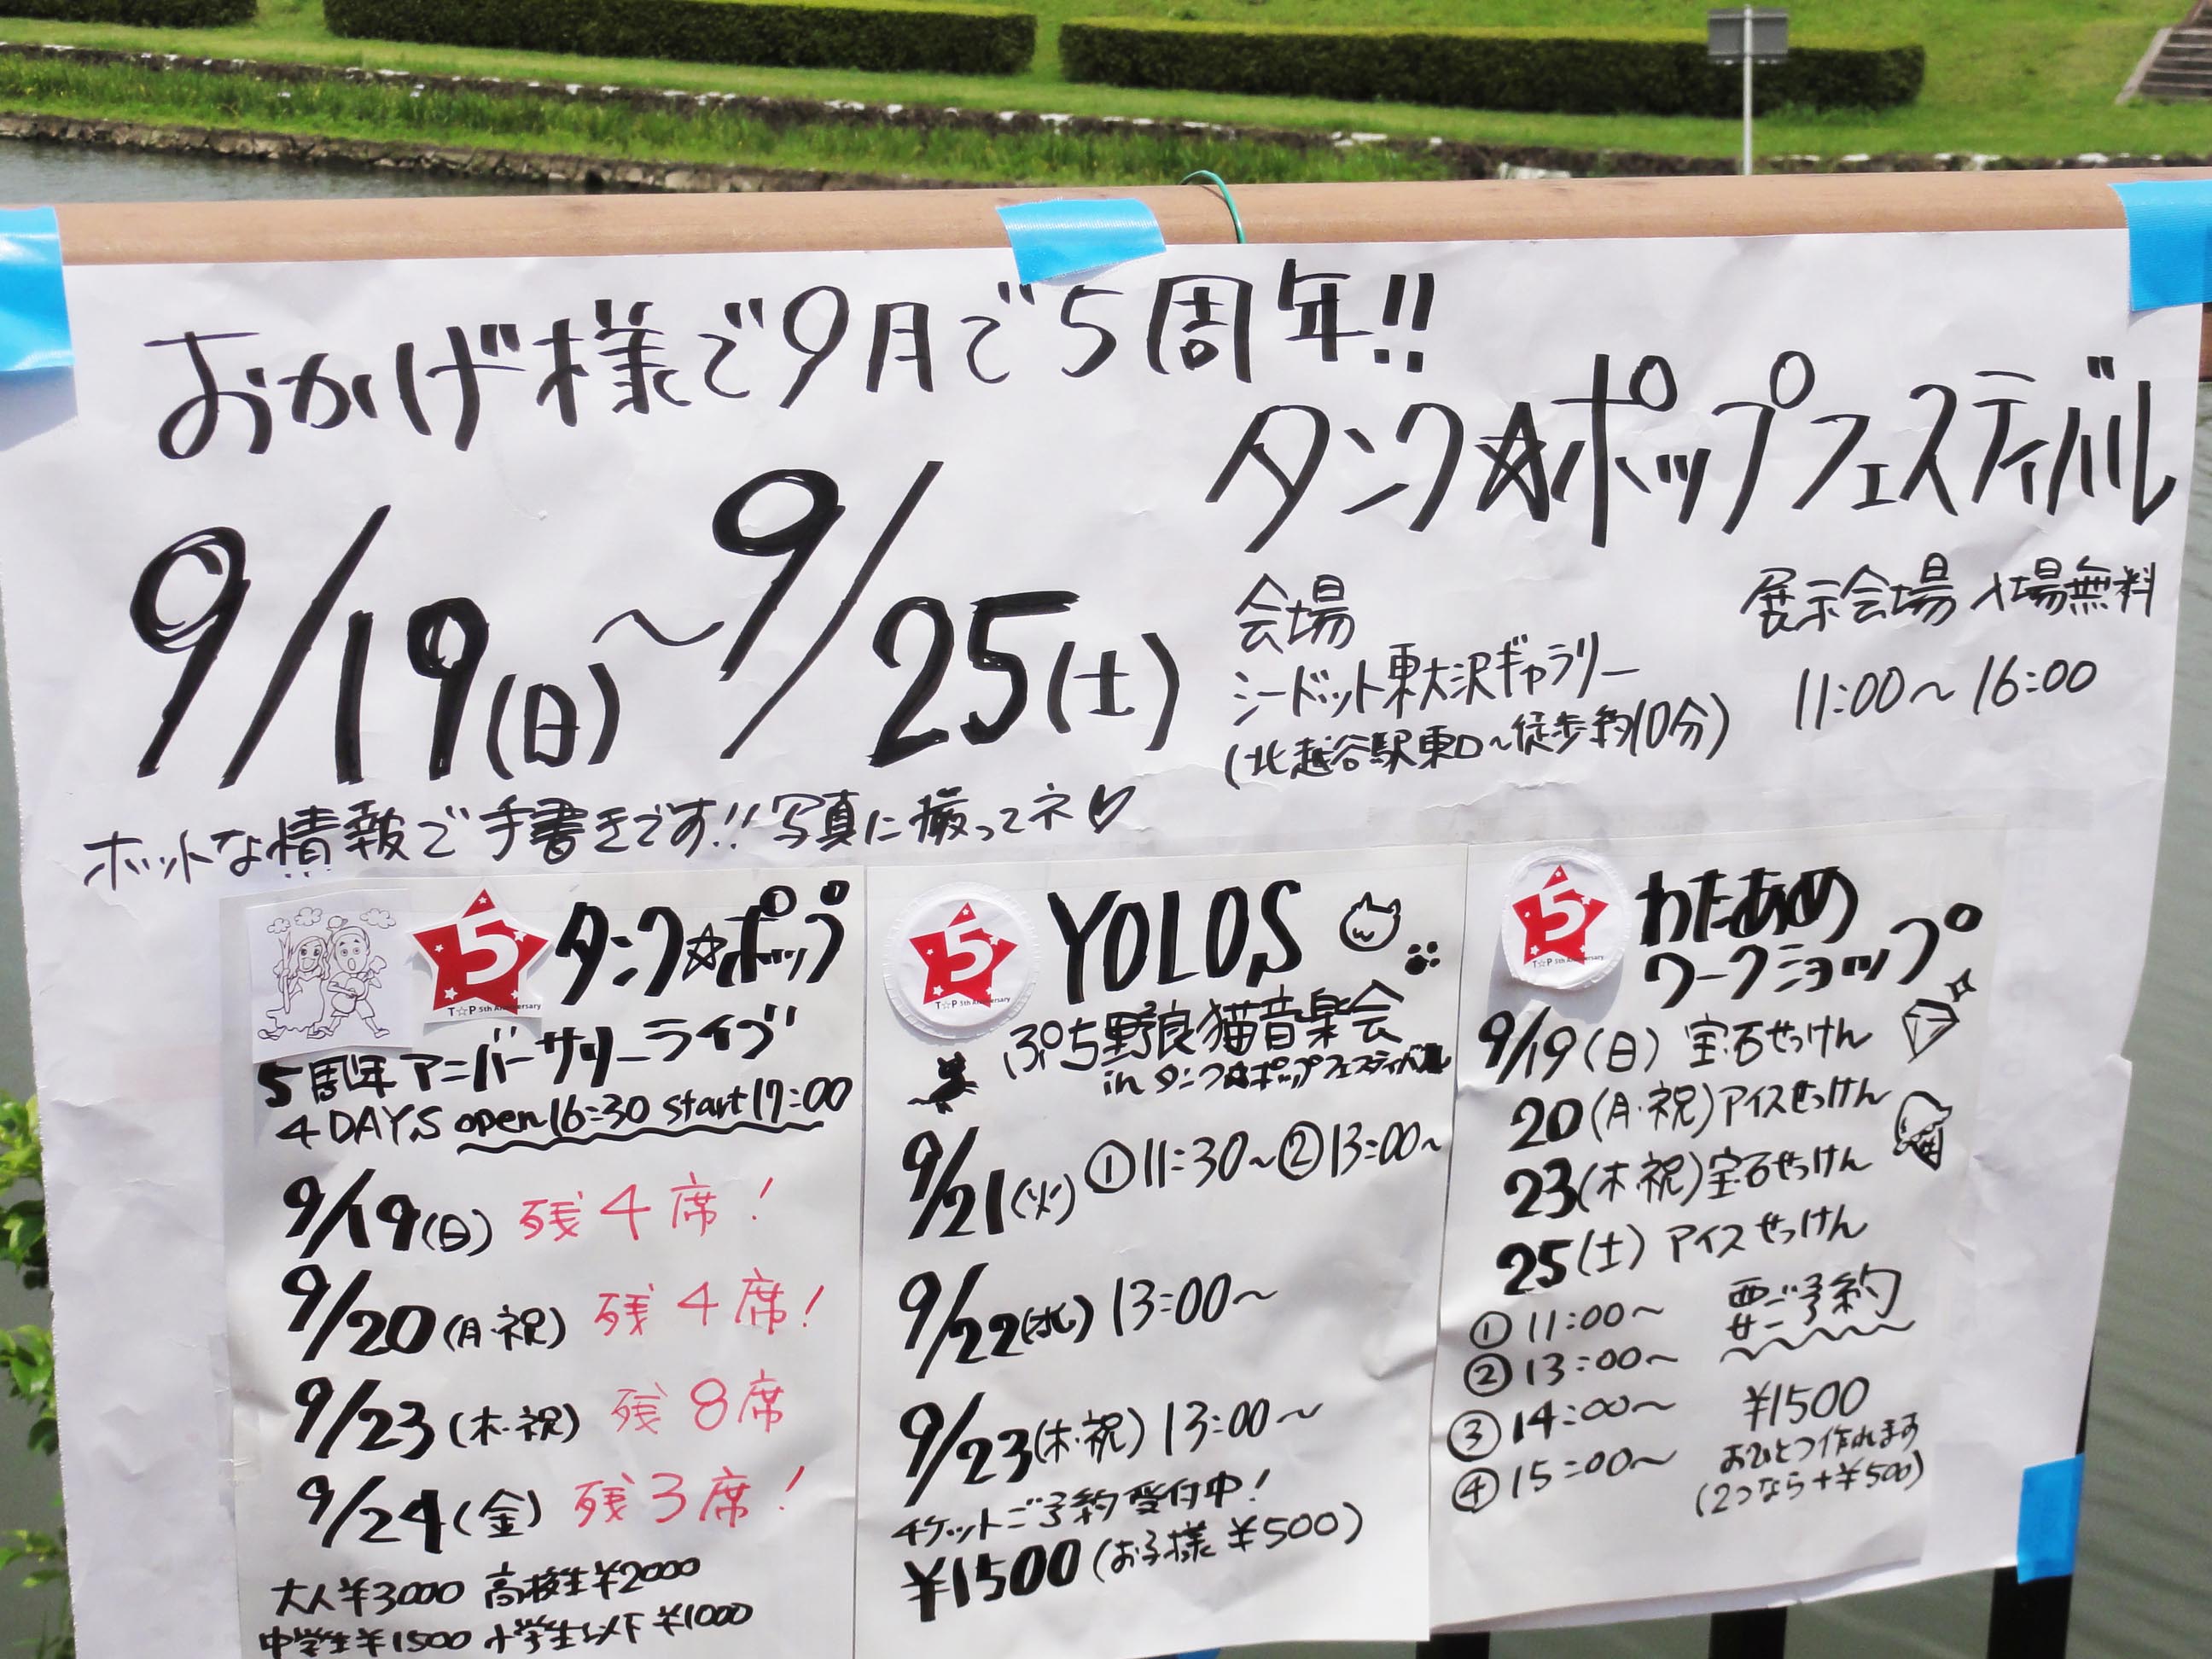 おかげ様で9月で5周年!!
タンク☆ポップフェスティバル
9/19(日)～9/25(土)
会場
シードット東大沢ギャラリー
(北越谷駅東口～徒歩約10分)
展示会場 入場無料
11:00～16:00
ホットな情報で手書きです!!写真に撮ってネ♡
5
T☆P 5th Anniversary
タンク☆ポップ
5周年アニバーサリーライブ
4DAYS open16:30 start17:00
9/19(日) 残4席!
9/20(月・祝) 残4席!
9/23(木・祝) 残8席
9/24(金) 残3席!
大人¥3000 高校生¥2000
中学生¥1500 小学生以下¥1000
5
T☆P 5th Anniversary
YOLOS
ぷち野良猫音楽会
in タンク☆ポップフェスティバル
9/21(火) ①11:30～②13:00～
9/22(水) 13:00～
9/23(木・祝) 13:00～
チケットご予約受付中!
¥1500(お子様 ¥500)
5
T☆P 5th Anniversary
わたあめ
ワークショップ
9/19(日) 宝石せっけん
20(月・祝)アイスせっけん
23(木・祝)宝石せっけん
25(土) アイスせっけん
①11:00～
②13:00～
③14:00～
④15:00～
要ご予約
¥1500
おひとつ作れます
(2つなら+¥500)